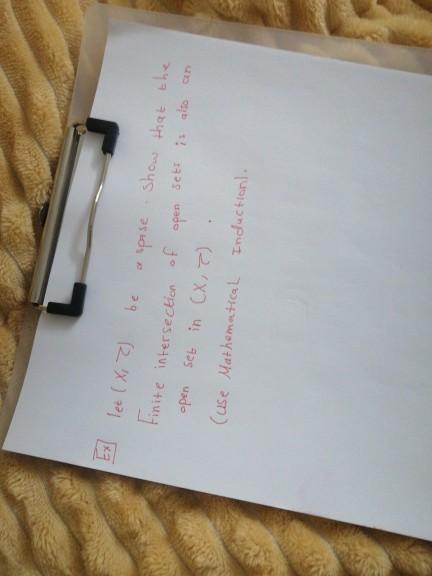 Ex let (X, τ) be a spase. Show that the
Finite intersection of open sets is also an
open set in (X, τ).
(use Mathematical Induction).